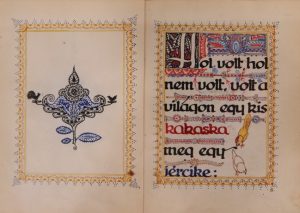 Hol volt hol
nem volt, volt a
világon egy kis
kakaska
meg egy
jércike: